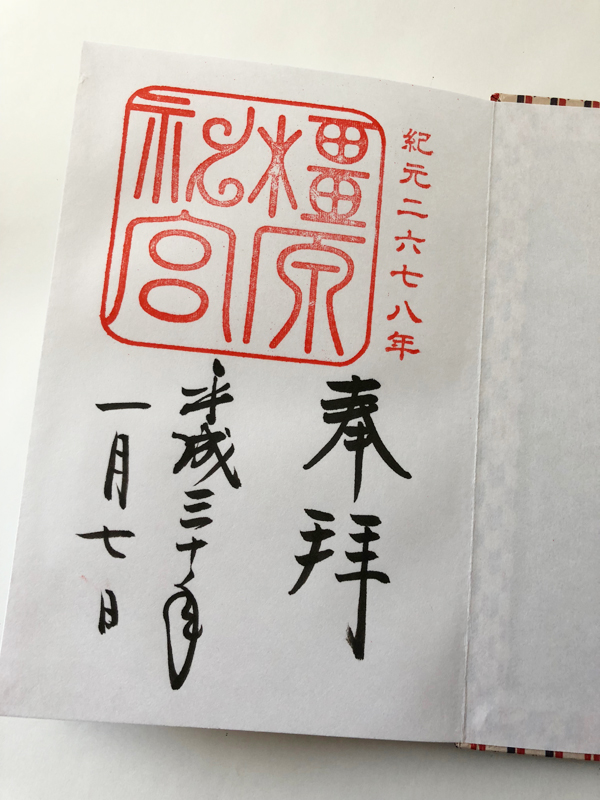 紀元二六七八年
橿原
神宮
奉拝
平成三十年
一月七日